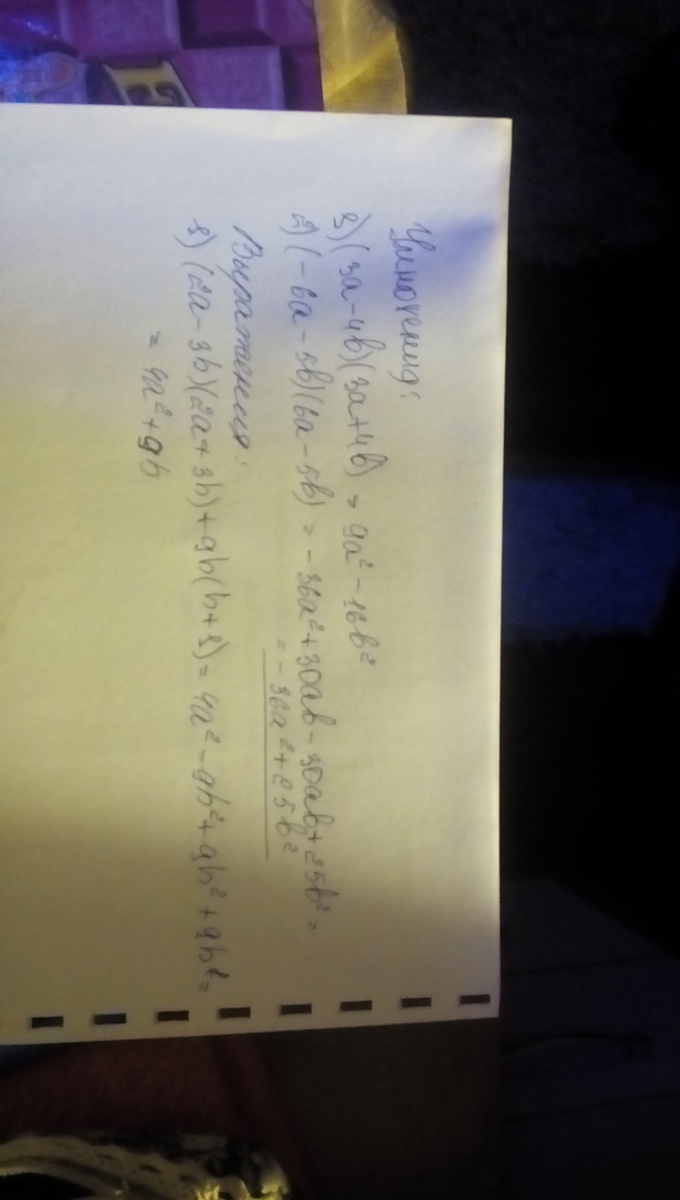 Умножения:
1) (3a-4b)(3a+4b) = 9a² - 16b²
2) (-6a-5b)(6a-5b) = -36a²+30ab-30ab+25b² =
= -36a²+25b²
Выражения:
1) (2a-3b)(2a+3b)+9b(b+1) = 4a²-9b²+9b²+9b² =
= 4a²+9b
E